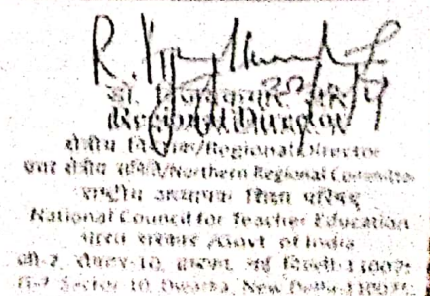 डॉ.
Regional Director
क्षेत्रीय निदेशक/Regional Director
उत्तर क्षेत्रीय समिति/Northern Regional Committee
राष्ट्रीय अध्यापक शिक्षा परिषद्
National Council for Teacher Education
भारत सरकार /Govt of India
जी-7, सैक्टर-10, द्वारका, नई दिल्ली-110075
G-7 Sector 10, Dwarka, New Delhi-110075